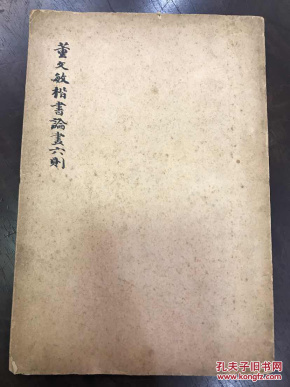 董文敏楷書論畫六則
孔夫子旧书网